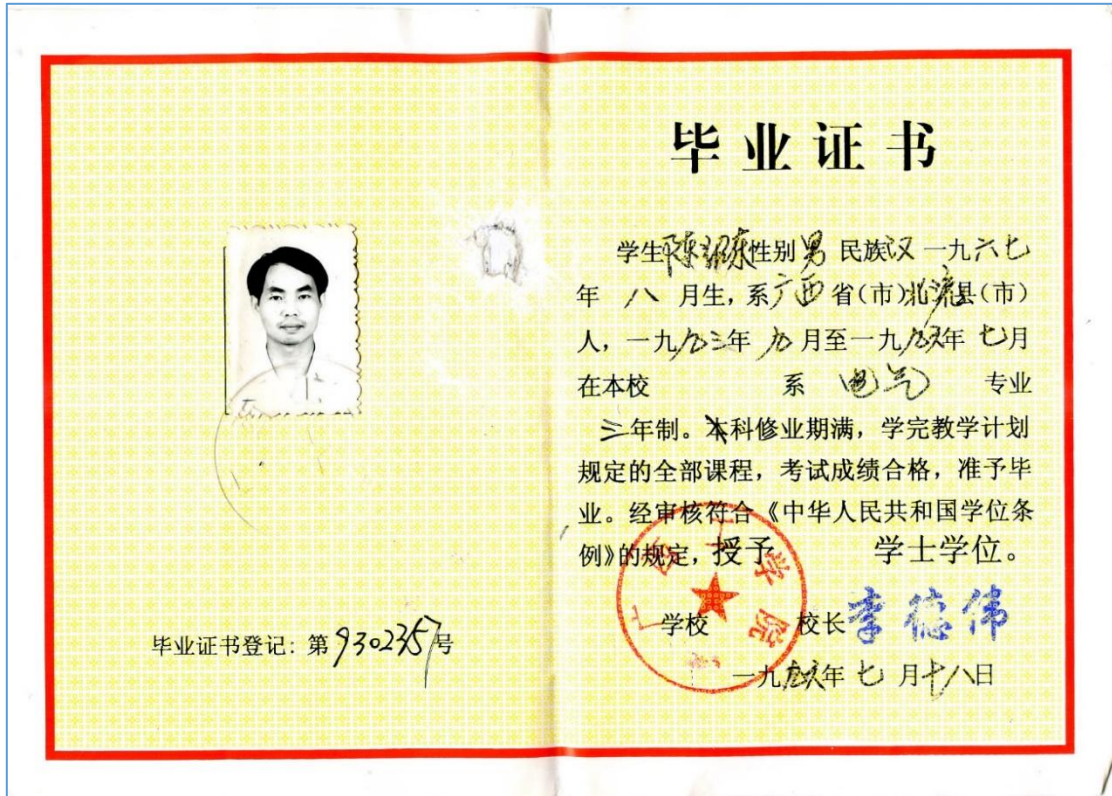 毕业证书
学生陈绍东性别男 民族汉 一九六七
年 八 月生，系广西省（市）北流县（市）
人，一九九三年 九 月至一九九六年 七月
在本校 系 电气 专业
三年制。本科修业期满，学完教学计划
规定的全部课程，考试成绩合格，准予毕
业。经审核符合《中华人民共和国学位条
例》的规定，授予 学士学位。
学校 校长 李德伟
一九九六年 七 月十八日
广西 学院
毕业证书登记：第9302357号